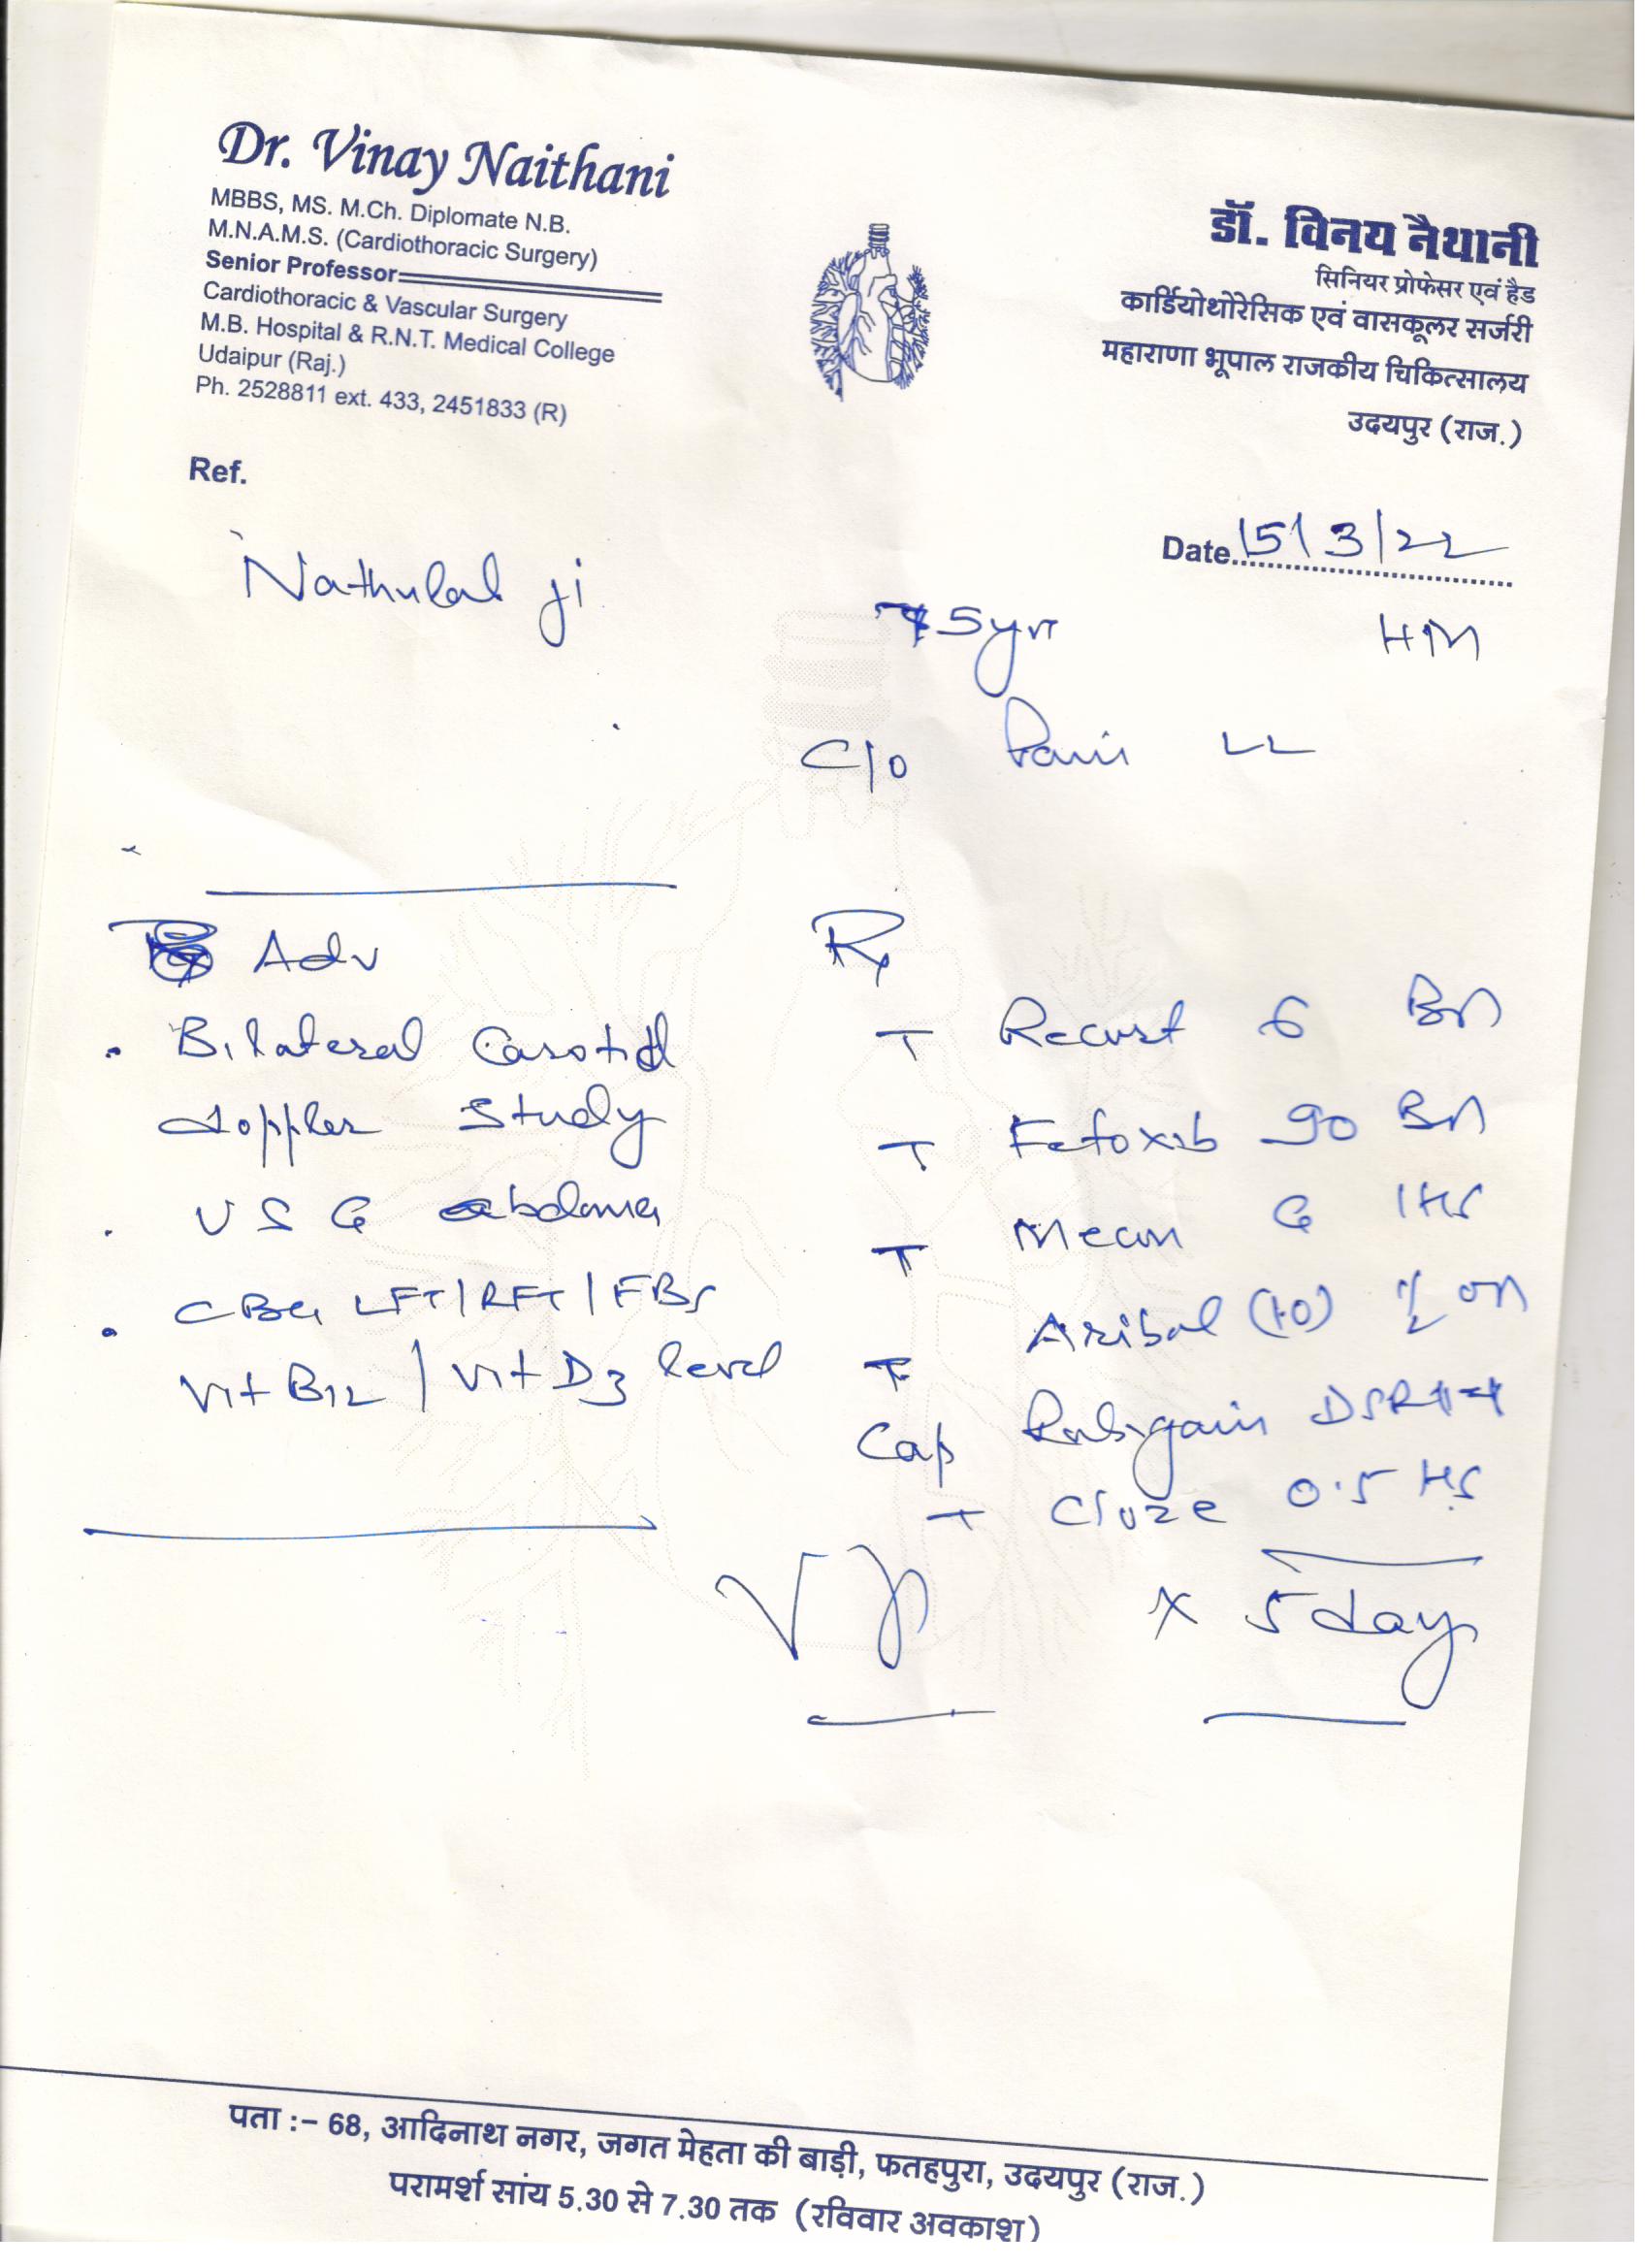 Dr. Vinay Naithani
MBBS, MS. M.Ch. Diplomate N.B.
M.N.A.M.S. (Cardiothoracic Surgery)
Senior Professor
Cardiothoracic & Vascular Surgery
M.B. Hospital & R.N.T. Medical College
Udaipur (Raj.)
Ph. 2528811 ext. 433, 2451833 (R)
डॉ. विनय नैथानी
सिनियर प्रोफेसर एवं हैड
कार्डियोथोरेसिक एवं वासकूलर सर्जरी
महाराणा भूपाल राजकीय चिकित्सालय
उदयपुर (राज.)
Ref.
Date 15/3/22
Nathulal ji
5yrs
C/o Pain LL
Adv
Bilateral Carotid
doppler Study
USG abdomen
LFT/RFT/FBS
Vit B12 / Vit D3 level
Rx
T 6
T 90
T
T (10) 1/2
Cap DSR
T 0.5 HS
x 5 day
पता :– 68, आदिनाथ नगर, जगत मेहता की बाड़ी, फतहपुरा, उदयपुर (राज.)
परामर्श सांय 5.30 से 7.30 तक (रविवार अवकाश)